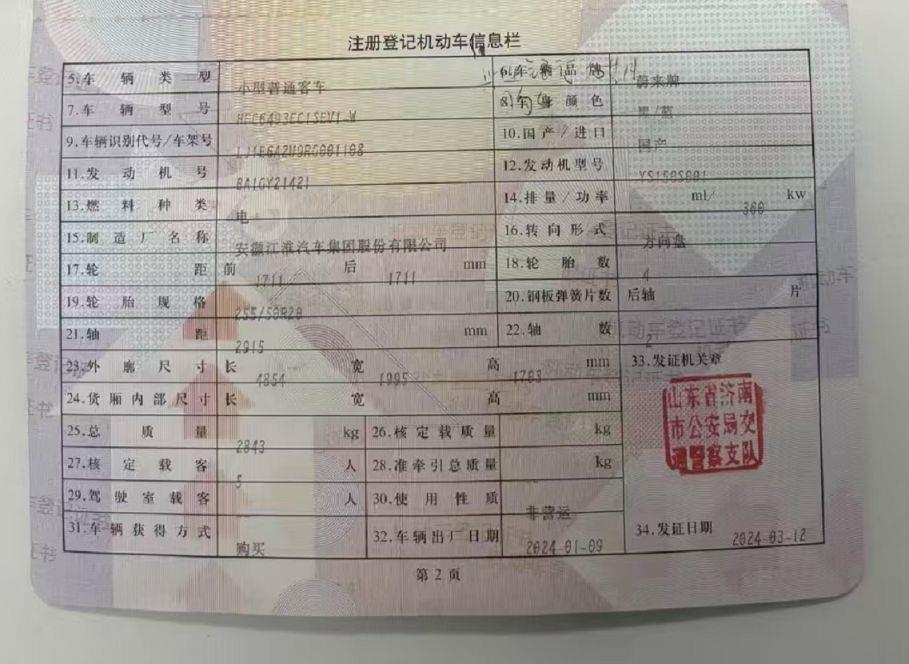 注册登记机动车信息栏
5.车辆类型 小型普通客车 6.车辆品牌 蔚来牌
7.车辆型号 HFC6493ECISEV1-W 8.车身颜色 黑/蓝
9.车辆识别代号/车架号 10.国产/进口 国产
11.发动机号 BA1GY21421 12.发动机型号
13.燃料种类 电 14.排量/功率 ml/ 360 kw
15.制造厂名称 安徽江淮汽车集团股份有限公司 16.转向形式 方向盘
17.轮距 前 1711 后 1711 mm 18.轮胎数 4
19.轮胎规格 255/50R20 20.钢板弹簧片数 后轴 片
21.轴距 2915 mm 22.轴数 2
23.外廓尺寸 长 4854 宽 1995 高 1703 mm 33.发证机关章
24.货厢内部尺寸 长 宽 高 mm
山东省济南
市公安局交
通警察支队
25.总质量 2843 kg 26.核定载质量 kg
27.核定载客 5 人 28.准牵引总质量 kg
29.驾驶室载客 人 30.使用性质 非营运
31.车辆获得方式 购买 32.车辆出厂日期 2024-01-09 34.发证日期 2024-03-12
第 2 页